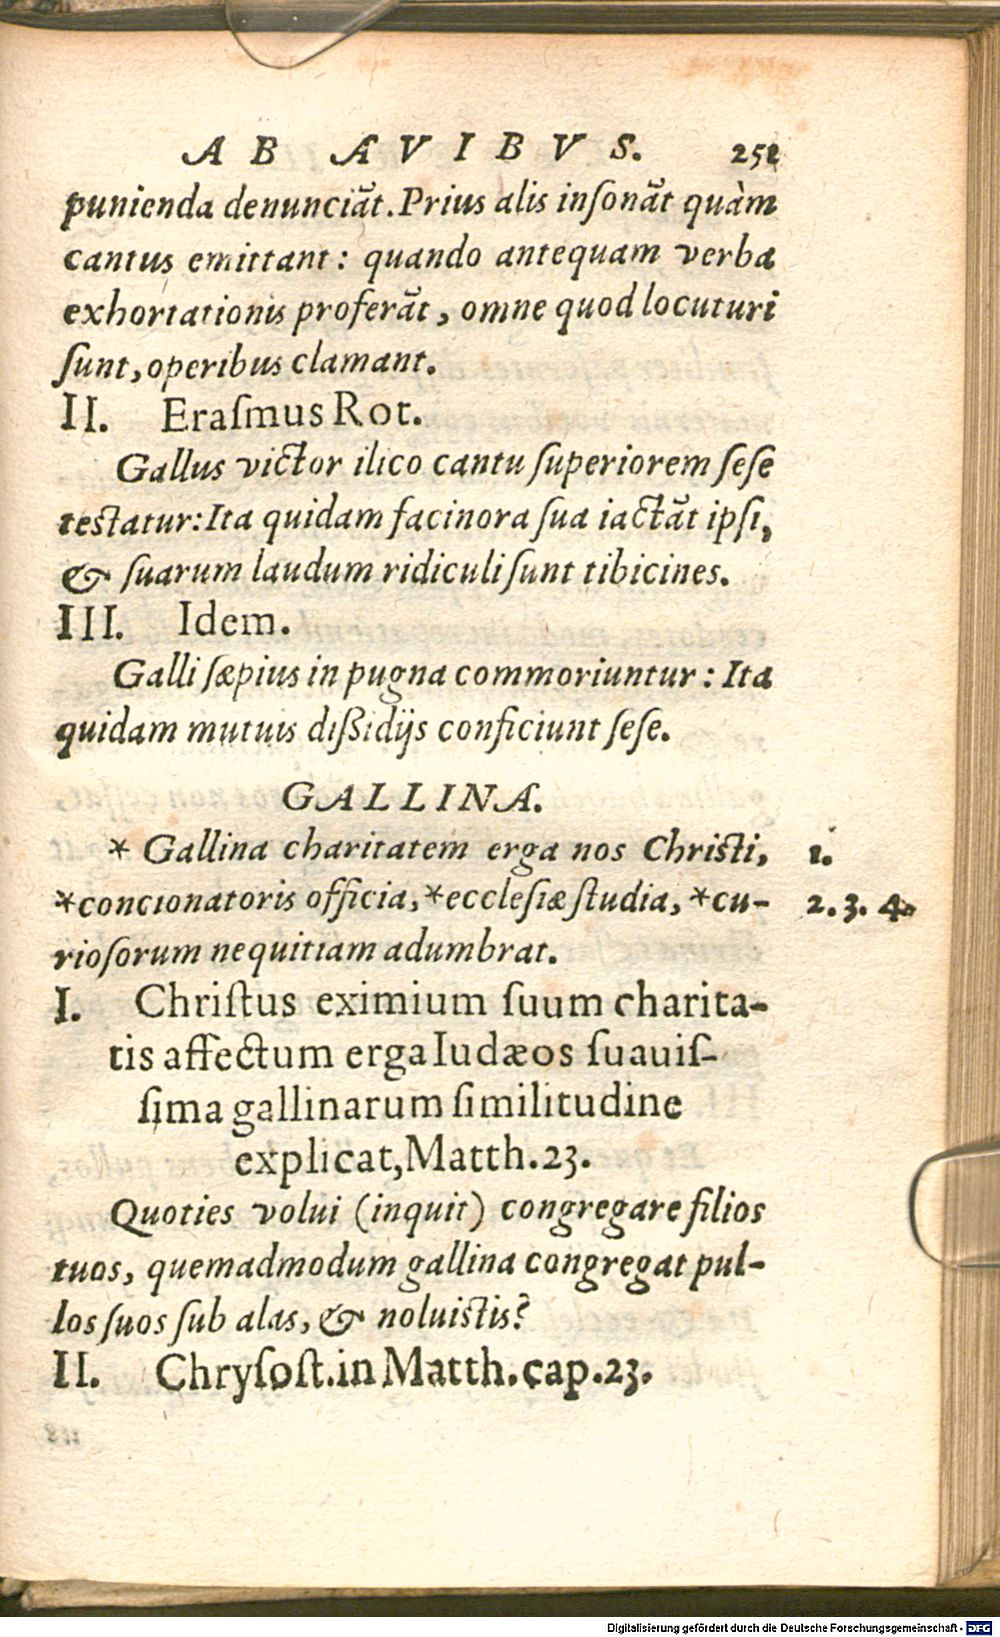 AB AVIBVS. 251
punienda denunciãt. Prius alis inſonãt quàm
cantus emittant: quando antequam verba
exhortationis proferãt, omne quod locuturi
ſunt, operibus clamant.
II. Eraſmus Rot.
Gallus victor ilico cantu ſuperiorem ſeſe
teſtatur: Ita quidam facinora ſua iactãt ipſi,
& ſuarum laudum ridiculi ſunt tibicines.
III. Idem.
Galli ſæpius in pugna commoriuntur: Ita
quidam mutuis diſſidijs conficiunt ſeſe.
GALLINA.
* Gallina charitatem erga nos Chriſti, 1.
*concionatoris officia, *eccleſiæ ſtudia, *cu- 2. 3. 4.
rioſorum nequitiam adumbrat.
I. Chriſtus eximium ſuum charita-
tis affectum erga Iudæos ſuauiſ-
ſima gallinarum ſimilitudine
explicat, Matth. 23.
Quoties volui (inquit) congregare filios
tuos, quemadmodum gallina congregat pul-
los ſuos ſub alas, & noluiſtis?
II. Chryſoſt. in Matth. cap. 23.
Digitalisierung gefördert durch die Deutsche Forschungsgemeinschaft - DFG